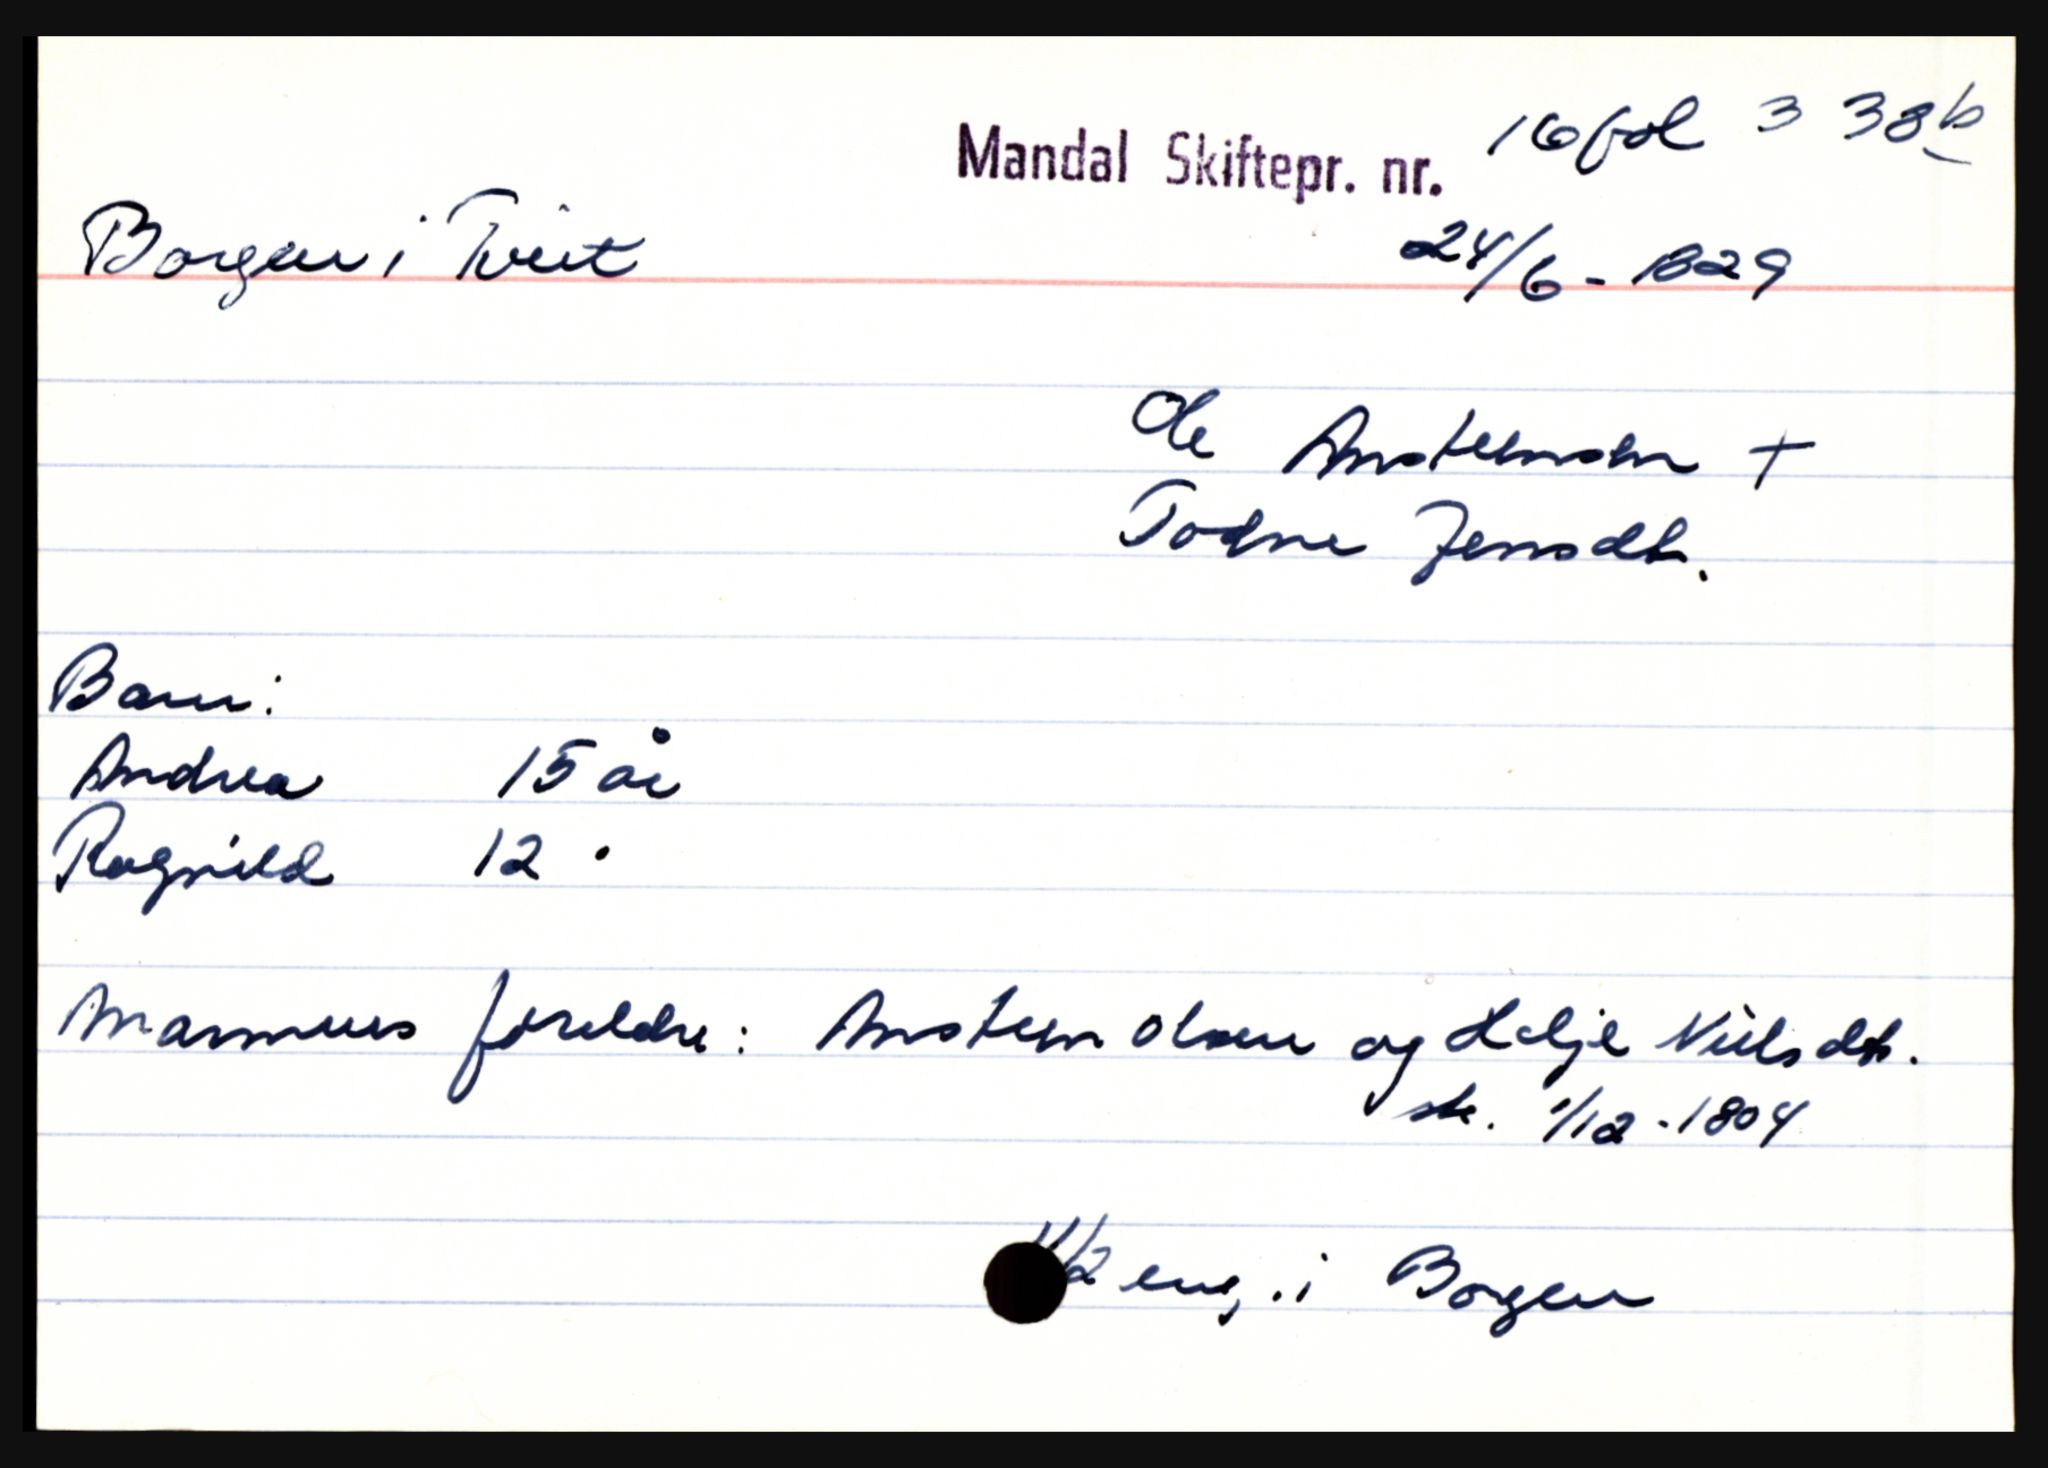 Mandal Skiftepr. nr. 16 fol 338b
Borgen i Tveit 24/6-1829
Ole Ansteinsen +
Todne Jensdt.
Barn:
Andrea 15 år
Ragnild 12 "
Mannens foreldre: Anstein Olsen og Helje Nielsdt.
sk. 1/12-1804
1/2 eng. i Borgen